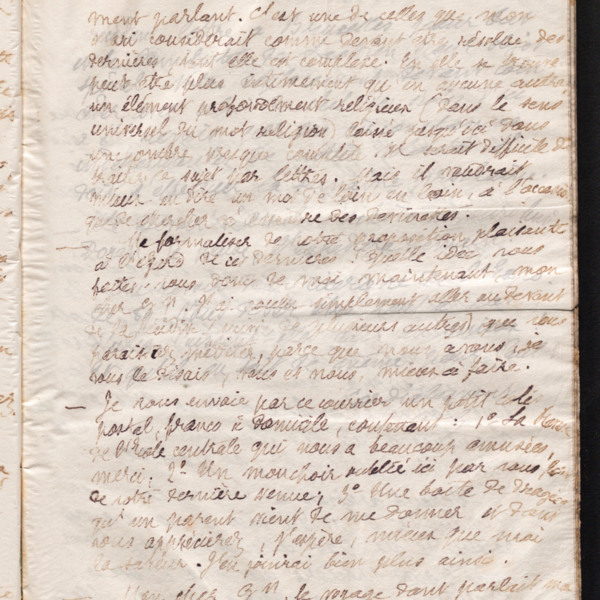 ment parlant. C'est une de celles que mon
mari considérait comme devant être résolue des
dernières, car elle est complexe. En elle se trouve
peut-être plus intimement qu'en aucune autre,
un élément profondément religieux (dans le sens
universel du mot religion) laissé jusqu'ici dans
une ombre presque complète. Il serait difficile de
traiter ce sujet par lettres. Mais il vaudrait
mieux en dire un mot de loin en loin, à l'occasion
que de chercher à des dernières.
— Me formaliser de votre proposition plaisante
à l'égard de ces dernières ! Quelle idée vous
faites-vous donc de moi maintenant, mon
cher 3 n. J'ai voulu simplement aller au devant
de la de plusieurs autres) que vous
paraissiez, parce que nous avons, je
vous le disais, vous et nous, mieux à faire.
— Je vous envoie par ce courrier un petit colis
postal, franco à domicile, contenant : 1° La Revue
de l'École centrale qui nous a beaucoup amusées,
merci; 2° Un mouchoir oublié ici par vous, lors
de votre dernière venue; 3° Une boîte de dragées
qu'un parent vient de me donner et dont
vous apprécierez, j'espère, mieux que moi
la saveur. J'en jouirai bien plus ainsi.
cher 3 n, le voyage dont parlait ma